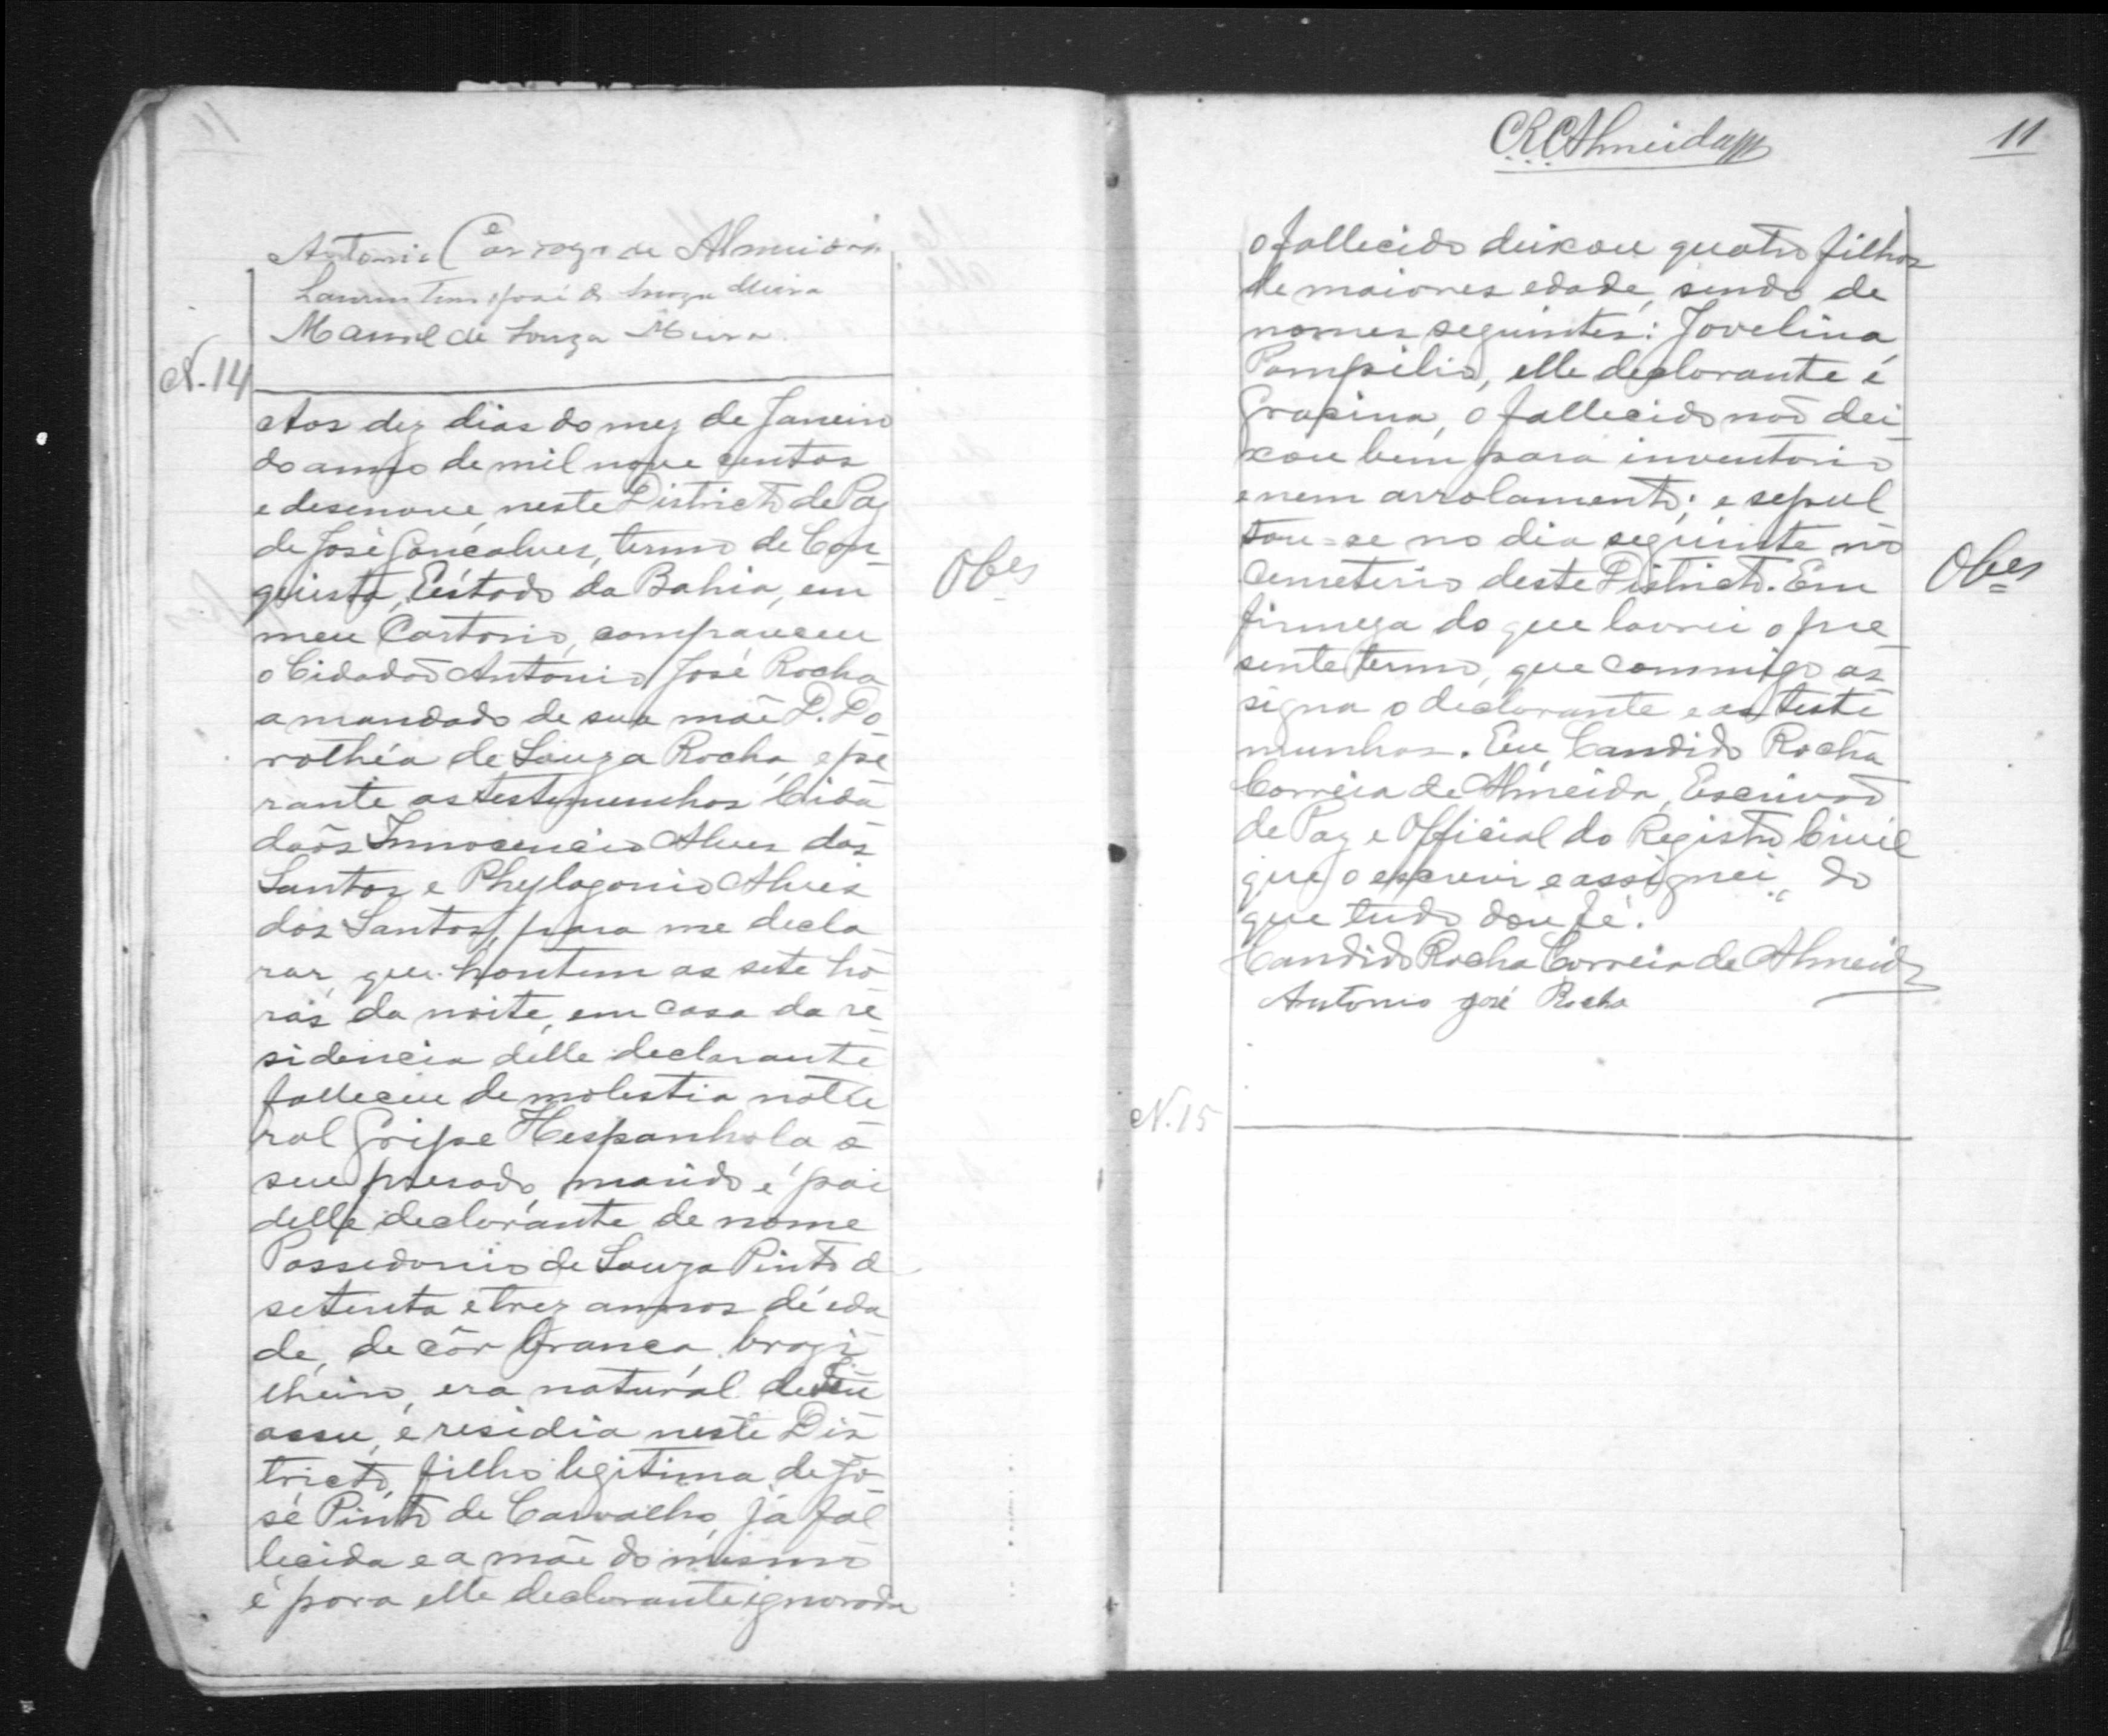 Antonio Cardozo de Almeida
Laurentino José de Souza Meira
Manoel de Souza Meira
N. 14
Aos dez dias do mez de Janeiro
do anno de mil nove centos
e desenove, neste Districto de Paz
de José Gonçalves, termo de Con-
quista, Estado da Bahia, em
meu Cartorio, compareceu
o Cidadaõ Antonio José Rocha
a mandado de sua mãe D. Do
rothéa de Souza Rocha, e pe
rante as testemunhas Cida
daõs Innocencio Alves dos
Santos e Phylogonio Alves
dos Santos, para me decla
rar, que hontem as sete ho
ras da noite, em casa da re-
sidencia delle declarante
falleceu de molestia natu
ral Gripe Hespanhola o
seu presado marido é pai
delle declarante, de nome
Possedonio de Souza Pinto de
setenta e trez annos de eda
de, de côr branca, brazi
lheiro, era natural de
assu, e residia neste Dis
tricto, filho legitima de Jo-
sé Pinto de Carvalho, já fal
lecida e a mãe do mesmo
é para elle declarante ignorada
Obes
CRCAlmeida
11
o fallecido deixou quatro filhos
de maiores edade, sendo de
nomes seguintes: Jovelina,
Pompilio, elle declarante é
Gracina, o fallecido naõ dei-
xou bem para inventorio
e nem arrolamento; e sepul
tou=se no dia seguinte no
Cemeterio deste Districto. Em
firmeza do que lavrei o pre
sente termo, que commigo as
signa o declarante e as teste
munhas. Eu, Candido Rocha
Correia de Almeida, Escrivaõ
de Paz e Official do Registro Civil
que o escrevi e assignei, do
que tudo dou fé.
Candido Rocha Correia de Almeida
Antonio José Rocha
Obes
N. 15